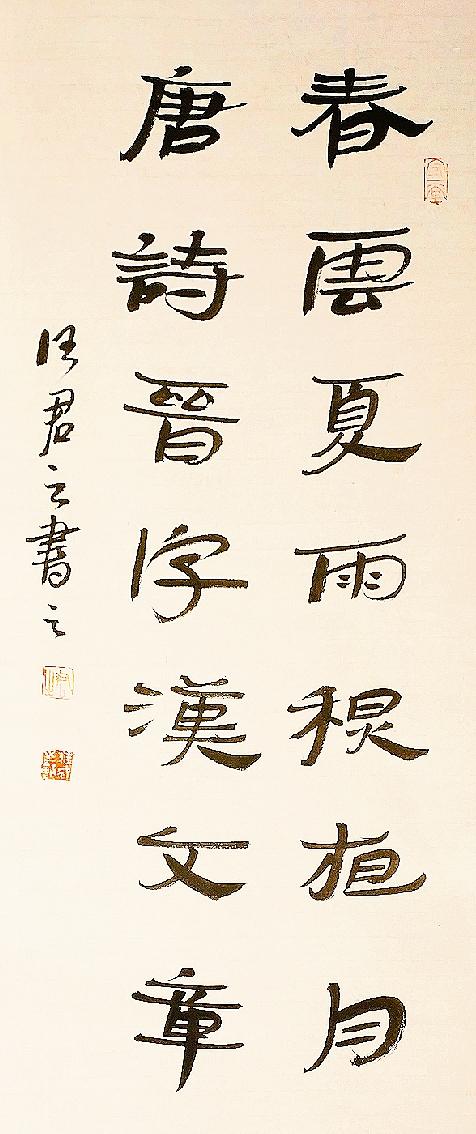 春雲夏雨秋夜月
唐詩晉字漢文章
君之書之